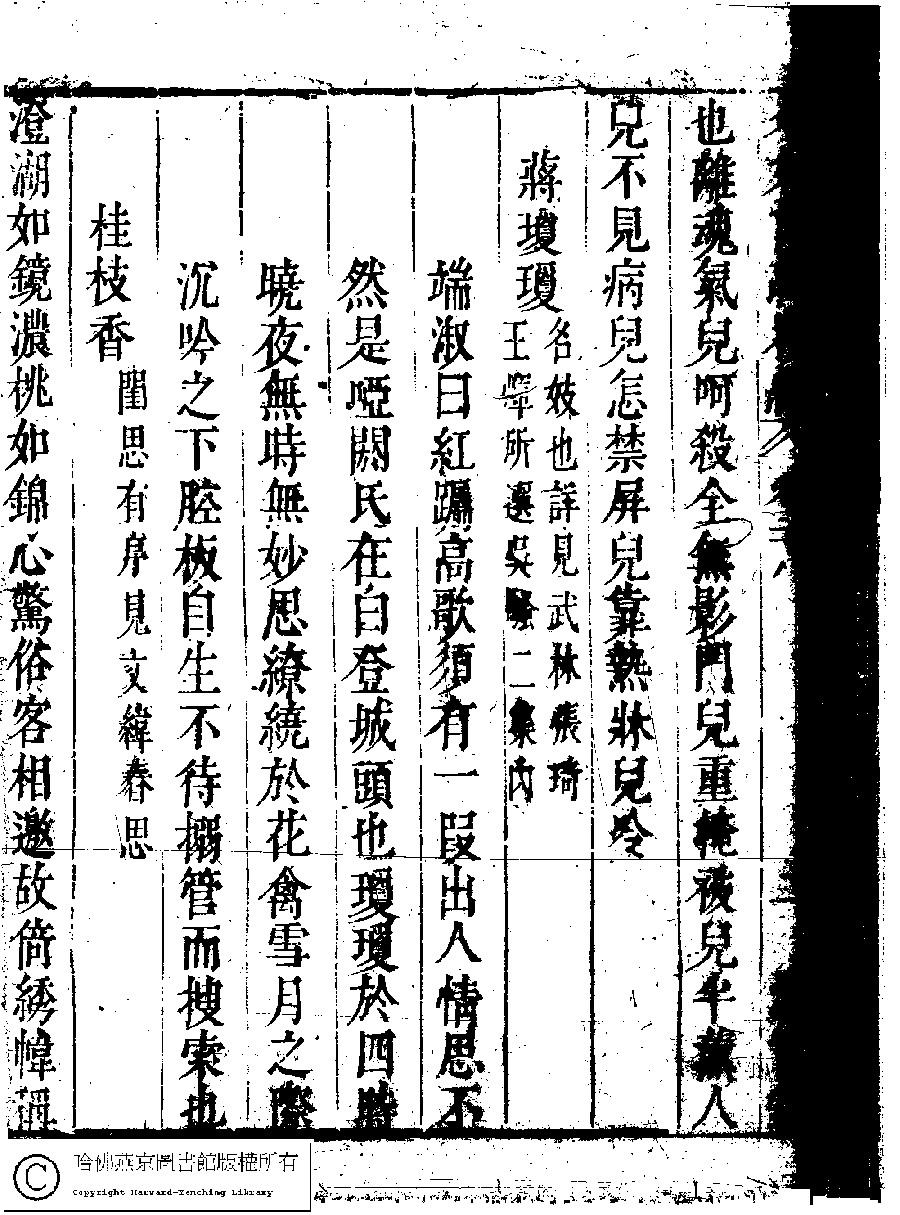 也離魂氣兒呵殺全無影門兒重掩被兒半薰人
兒不見病兒怎禁屏兒靠熱牀兒吟
蔣瓊瓊
名妓也詳見武林張琦
王輩所選吳騷二集內
端淑曰紅躡高歌須有一段出人情思不
然是啞閼氏在白登城頭也瓊瓊於四時
曉夜無時無妙思繚繞於花禽雪月之際
沉吟之下腔板自生不待搦管而搜索也
桂枝香
閨思有序見文緯春思
澄湖如鏡濃桃如錦心驚俗客相邀故倚綉幃稱
哈佛燕京圖書館版權所有
Copyright Harvard-Yenching Library